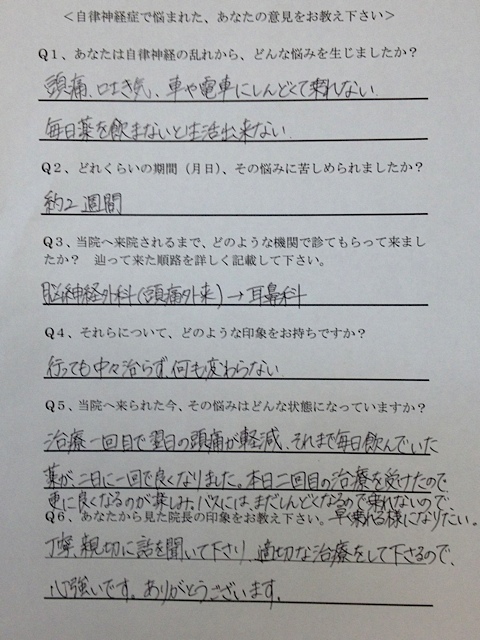 ＜自律神経症で悩まれた、あなたの意見をお教え下さい＞
Q１、あなたは自律神経の乱れから、どんな悩みを生じましたか？
頭痛、吐き気、車や電車にしんどくて乗れない
毎日薬を飲まないと生活出来ない
Q２、どれくらいの期間（月日）、その悩みに苦しめられましたか？
約2週間
Q３、当院へ来院されるまで、どのような機関で診てもらって来まし
たか？　辿って来た順路を詳しく記載して下さい。
脳神経外科（頭痛外来）→耳鼻科
Q４、それらについて、どのような印象をお持ちですか？
行っても中々治らず、何も変わらない
Q５、当院へ来られた今、その悩みはどんな状態になっていますか？
治療一回目で翌日の頭痛が軽減、それまで毎日飲んでいた
薬が二日に一回で良くなりました。本日二回目の治療を受けたので
更に良くなるのが楽しみ。バスには、まだしんどくなるので乗れないので
早く乗れる様になりたい。
Q６、あなたから見た院長の印象をお教え下さい。
丁寧、親切に話を聞いて下さり、適切な治療をして下さるので、
心強いです。ありがとうございます。